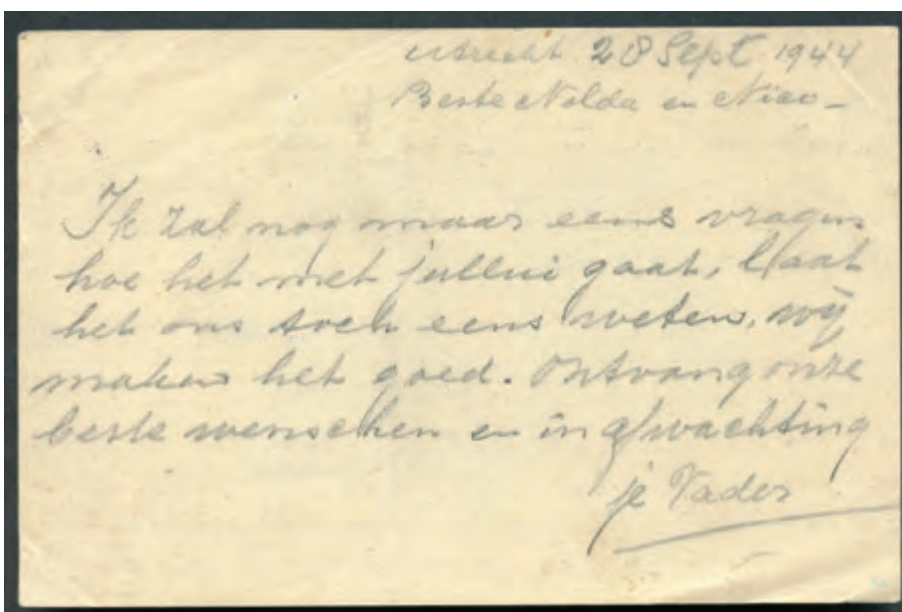 Utrecht 28 Sept 1944
Beste Nolda en Nico -
Ik zal nog maar eens vragen
hoe het met jullui gaat, Laat
het ons toch eens weten, wij
maken het goed. Ontvang onze
beste wenschen en in afwachting
je Vader